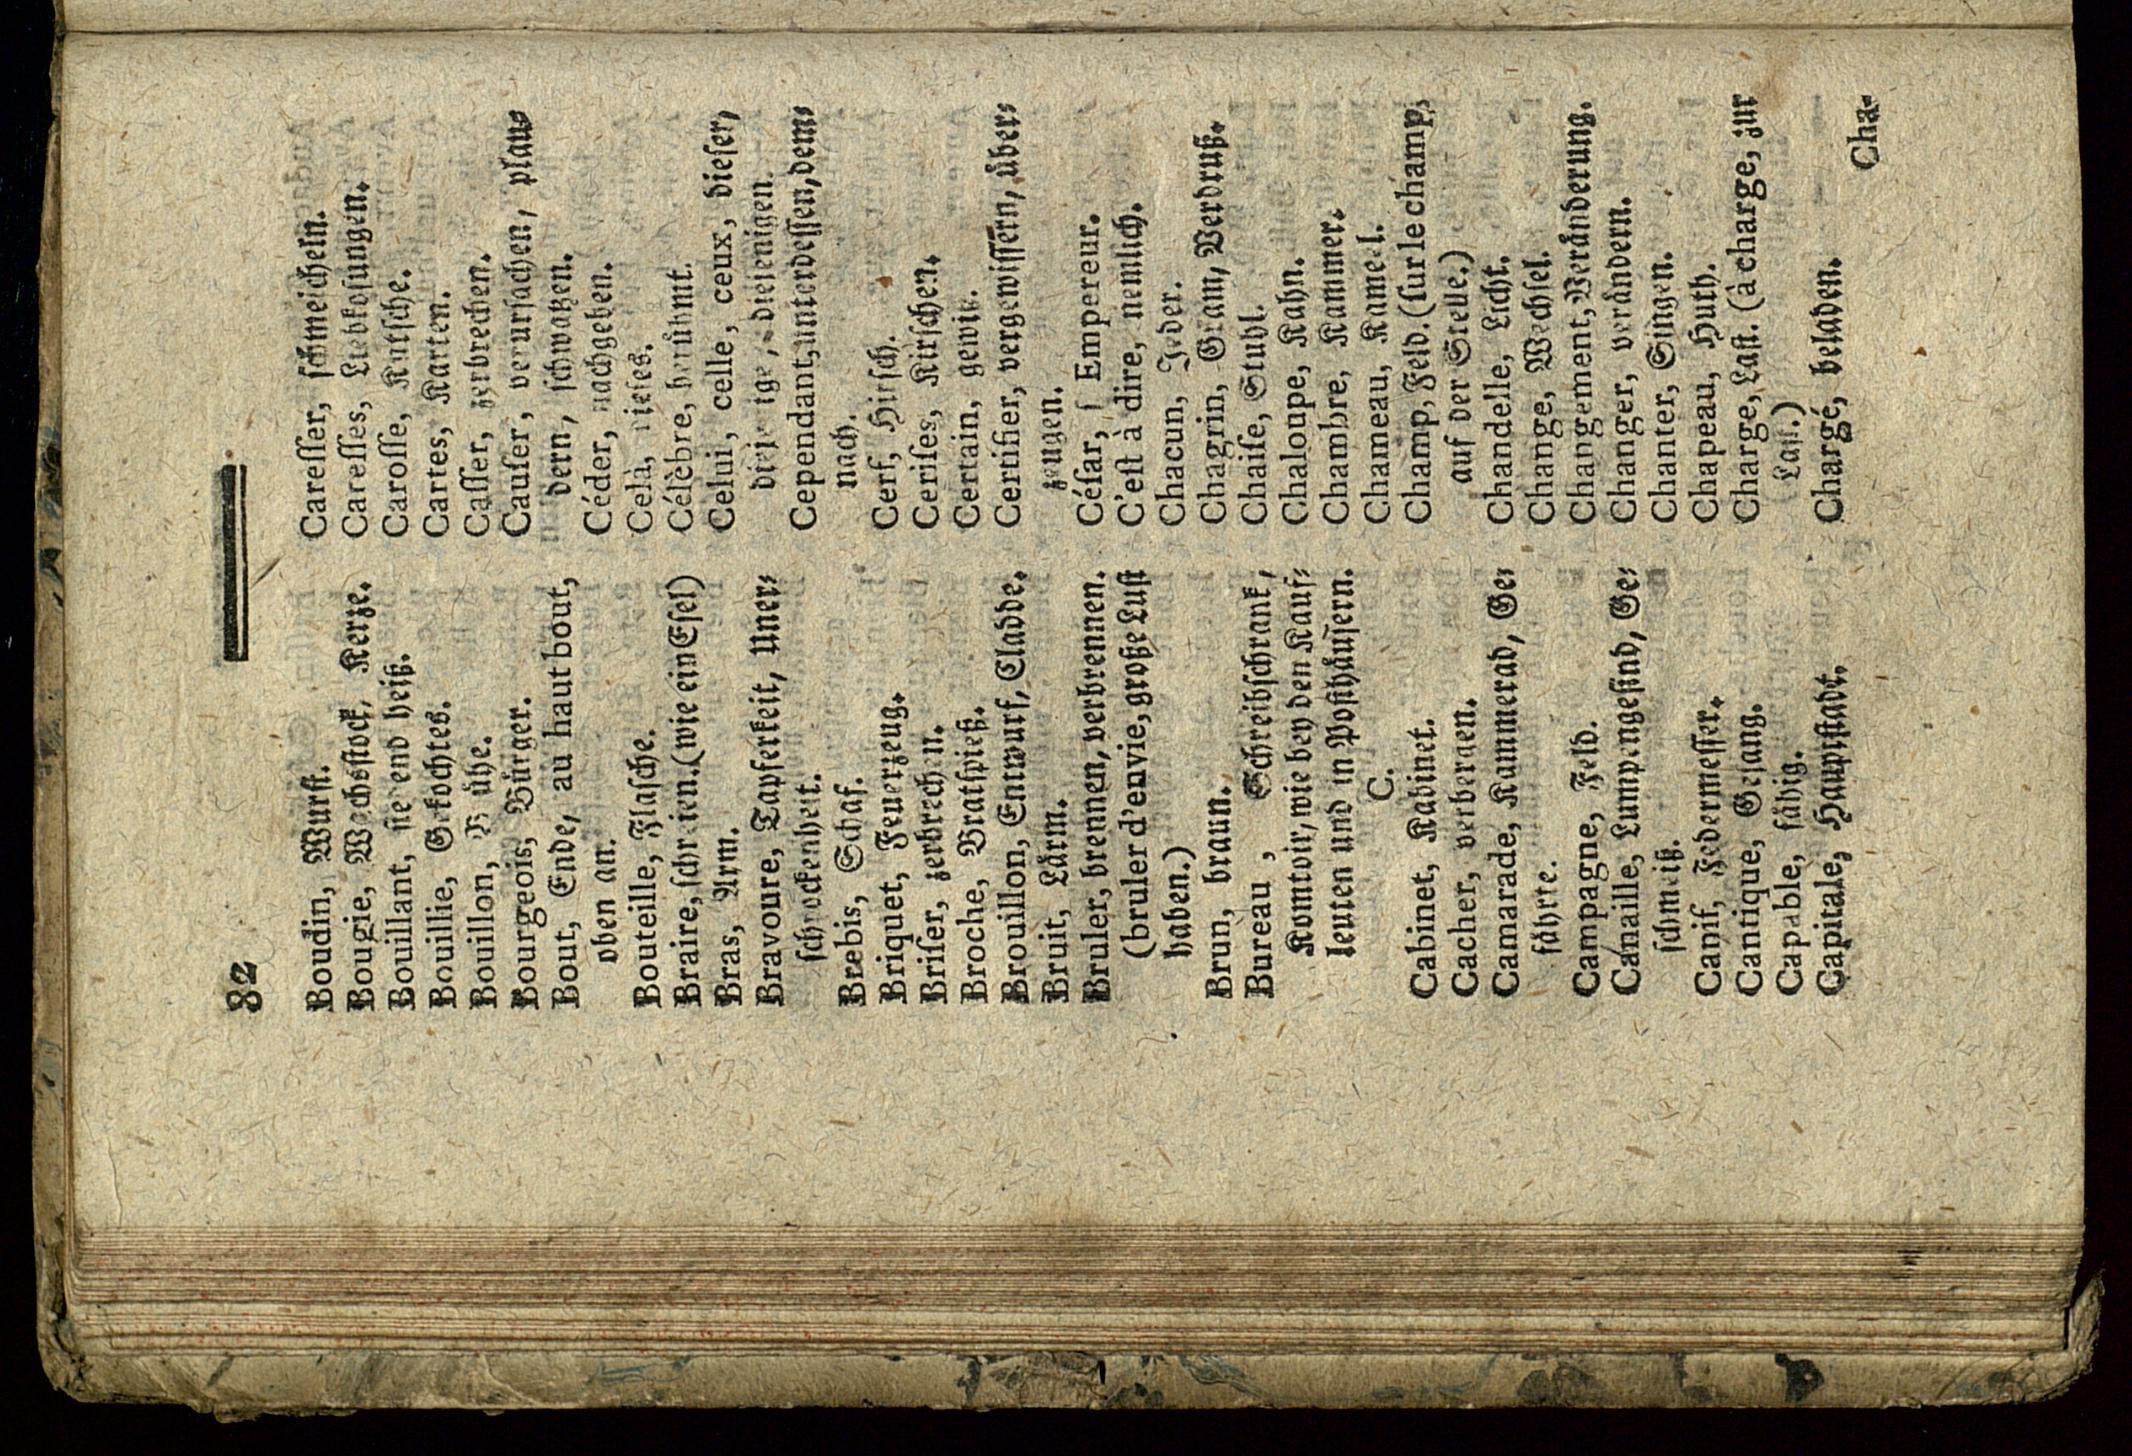 82
Boudin, Wurſt.
Bougie, Wachsſtock, Kerze.
Bouillant, ſiedend heiß.
Bouillie, Gekochtes.
Bouillon, Brühe.
Bourgeois, Bürger.
Bout, Ende, au haut bout,
oben an.
Bouteille, Flaſche.
Braire, ſchreien. (wie ein Eſel)
Bras, Arm.
Bravoure, Tapferkeit, Uner⸗
ſchrockenheit.
Brebis, Schaf.
Briquet, Feuerzeug.
Briſer, zerbrechen.
Broche, Bratſpieß.
Brouillon, Entwurf, Cladde.
Bruit, Lårm.
Bruler, brennen, verbrennen.
(bruler d'envie, große Luſt
haben.)
Brun, braun.
Bureau, Schreibſchrank,
Komtoir, wie bey den Kauf⸗
leuten und in Poſthåuſern.
C.
Cabinet, Kabinet.
Cacher, verbergen.
Camarade, Kammerad, Ge⸗
fåhrte.
Campagne, Feld.
Canaille, Lumpengeſind, Ge⸗
ſchmeiß.
Canif, Federmeſſer.
Cantique, Geſang.
Capable, fåhig.
Capitale, Hauptſtadt.
Careſſer, ſchmeicheln.
Careſſes, Liebkoſungen.
Caroſſe, Kutſche.
Cartes, Karten.
Caſſer, zerbrechen.
Cauſer, verurſachen, plau⸗
dern, ſchwatzen.
Céder, nachgeben.
Celà, dieſes.
Célèbre, berühmt.
Celui, celle, ceux, dieſer,
diejenige, diejenigen.
Cependant, unterdeſſen, dem⸗
nach.
Cerf, Hirſch.
Ceriſes, Kirſchen.
Certain, gewiß.
Certifier, vergewiſſern, über⸗
zeugen.
Céſar, ſ Empereur.
C'eſt à dire, nemlich.
Chacun, Jeder.
Chagrin, Gram, Verdruß.
Chaiſe, Stuhl.
Chaloupe, Kahn.
Chambre, Kammer.
Chameau, Kameel.
Champ, Feld. (ſur le champ,
auf der Stelle.)
Chandelle, Licht.
Change, Wechſel.
Changement, Verånderung.
Changer, veråndern.
Chanter, Singen.
Chapeau, Huth.
Charge, Laſt. (à charge, zur
Laſt.)
Chargé, beladen.
Cha-